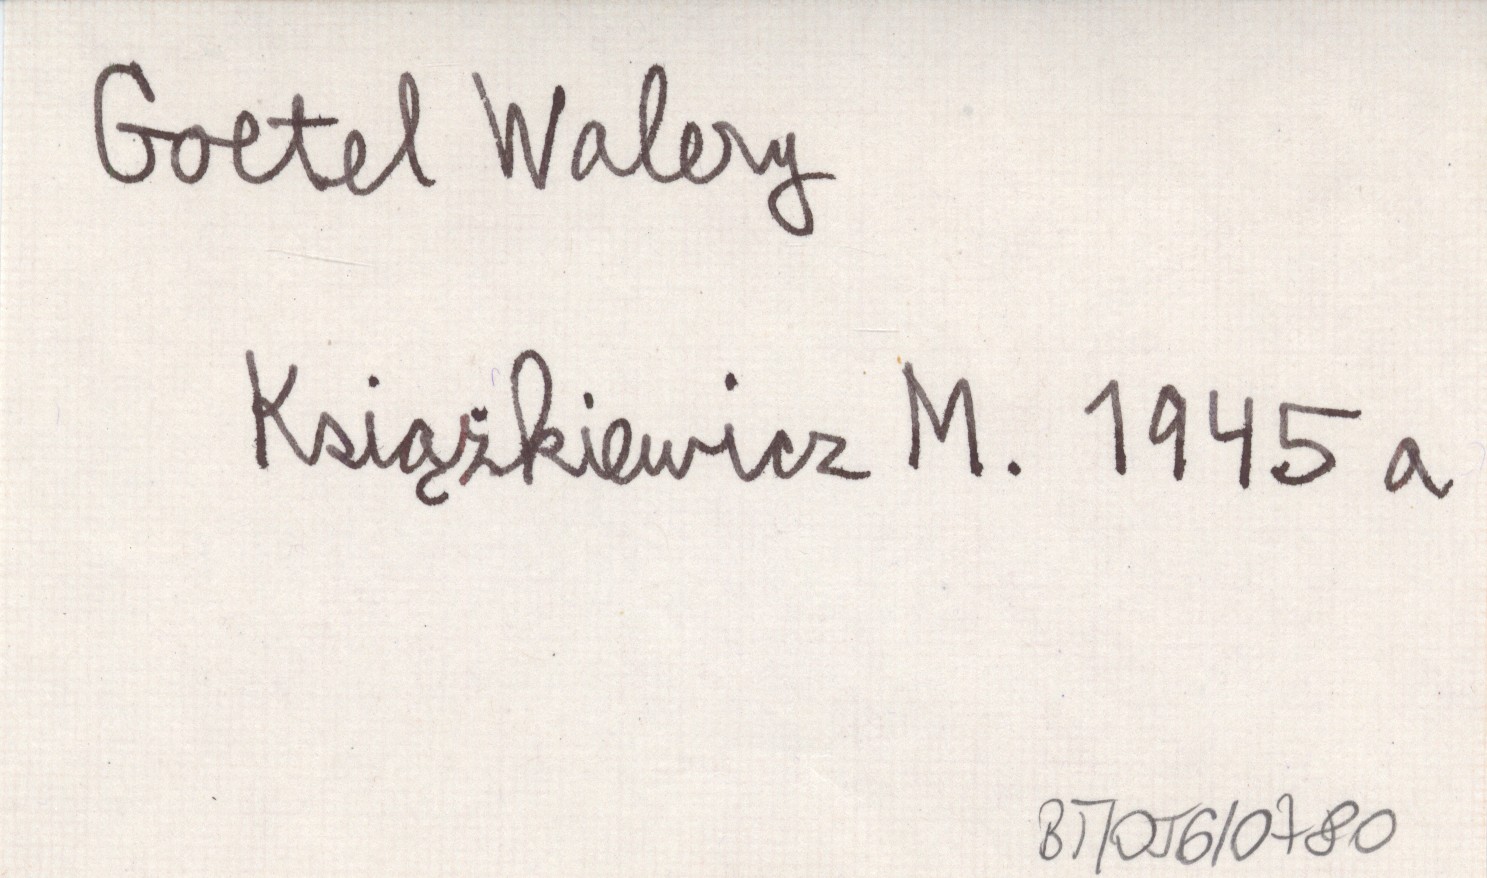 Goetel Walery
Książkiewicz M. 1945 a
BT/056/0780